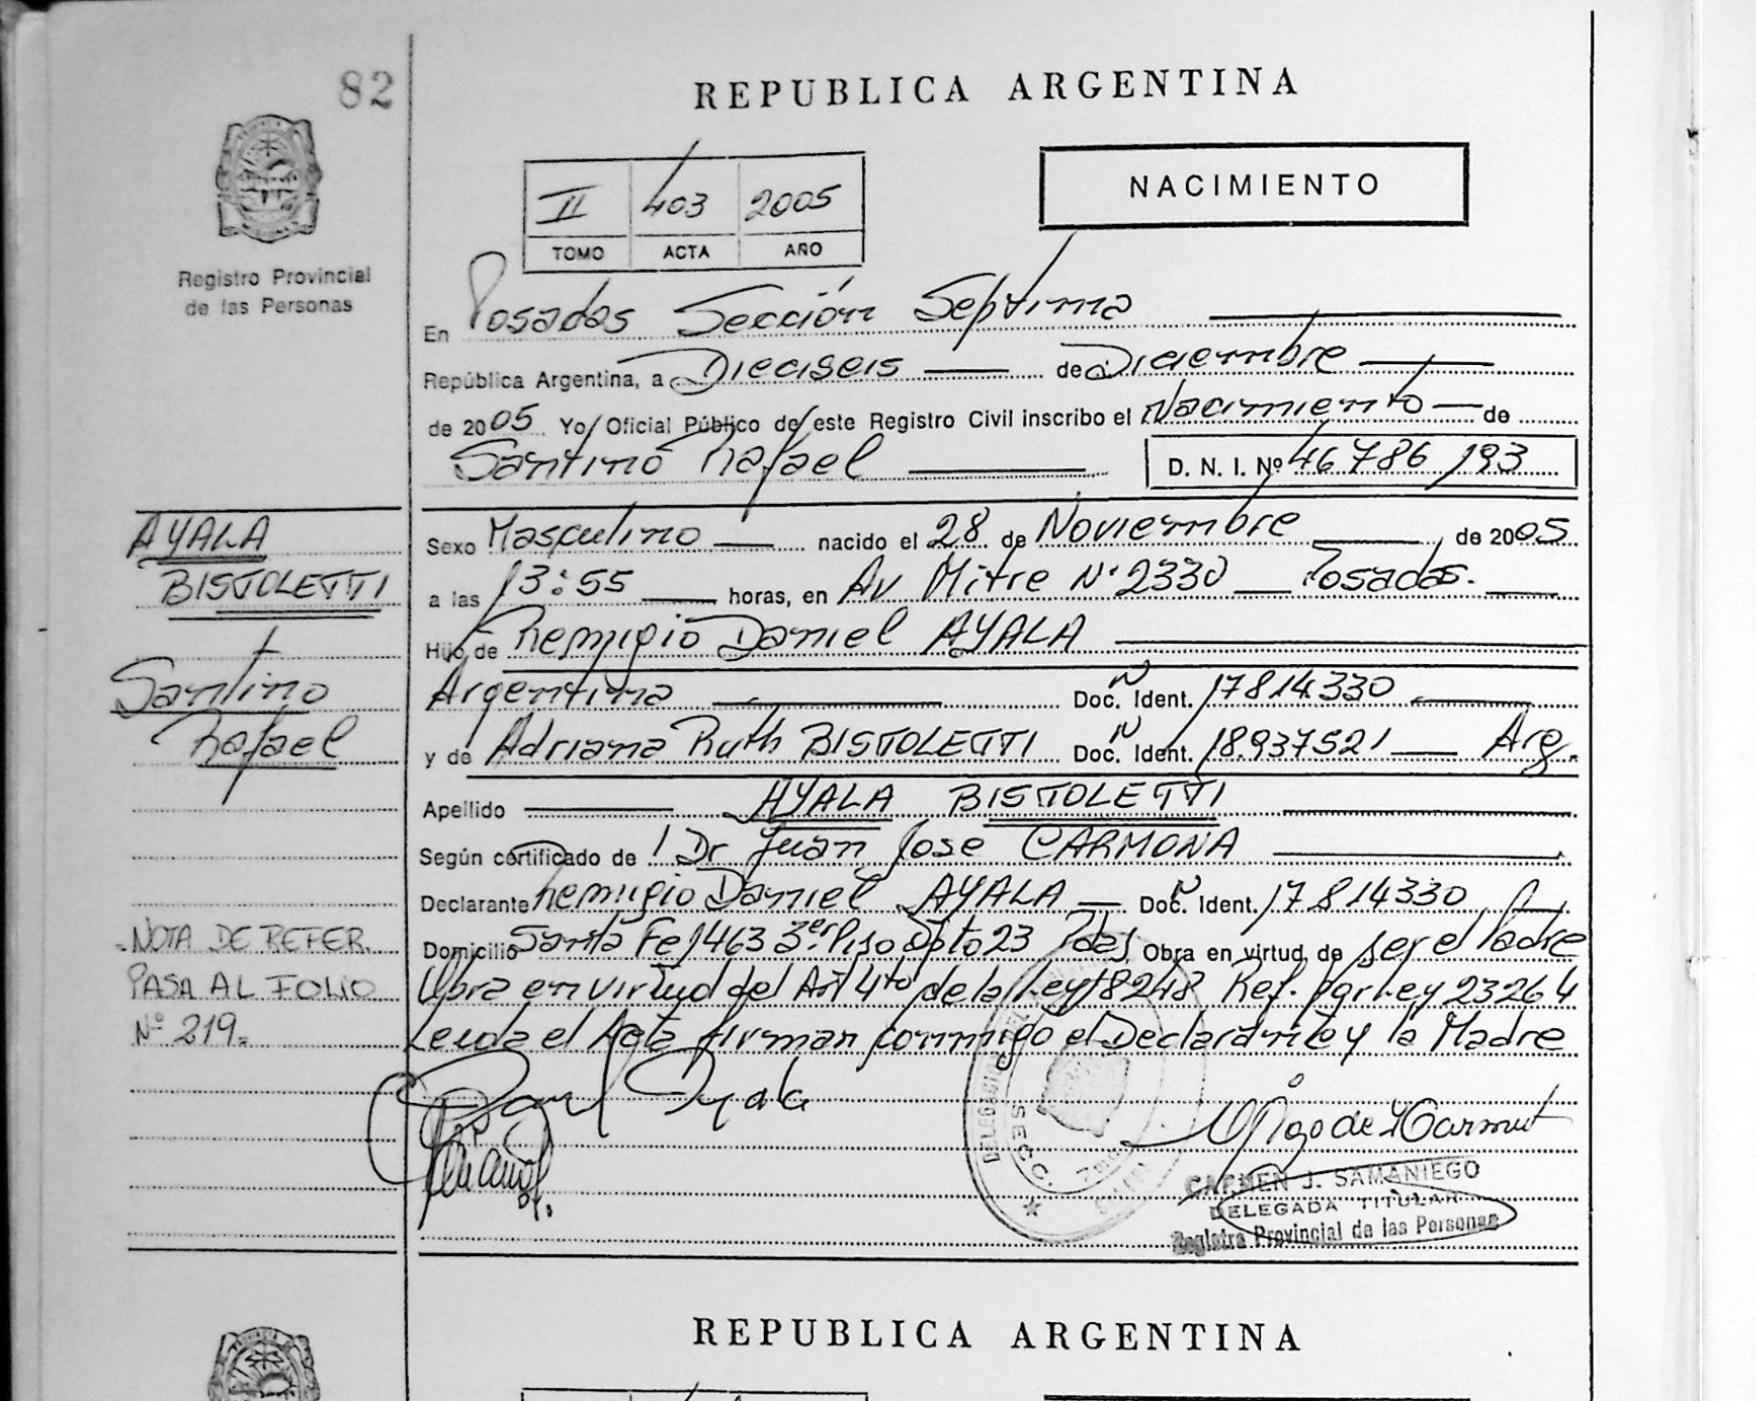 82
REPUBLICA ARGENTINA
NACIMIENTO
II 403 2005
TOMO ACTA AÑO
Registro Provincial
de las Personas
En Posadas Sección Septima
República Argentina, a Dieciseis de Diciembre
de 2005 Yo, Oficial Público de este Registro Civil inscribo el Nacimiento de
Santino Rafael D. N. I. Nº 46 786 193
AYALA
BISTOLETTI
Santino
Rafael
Sexo Masculino nacido el 28 de Noviembre de 2005
a las 13:55 horas, en Av Mitre Nº 2330 Posadas.
Hijo de Remigio Daniel AYALA
Argentina Doc. Ident. 17814330
y de Adriana Ruth BISTOLETTI Doc. Ident. 18.937521 Arg.
Apellido AYALA BISTOLETTI
Según certificado de Dr Juan Jose CARMONA
Declarante Remigio Daniel AYALA Doc. Ident. 17814330
Domicilio Santa Fe 1463 3er Piso Dpto 23 Pdas Obra en virtud de ser el Padre
Obra en virtud del Art 4to de la Ley 18248 Ref. por Ley 23264
Leida el Acta firman conmigo el Declarante y la Madre
NOTA DE REFER.
PASA AL FOLIO
Nº 219.
CARMEN J. SAMANIEGO
DELEGADA TITULAR
Registro Provincial de las Personas
REPUBLICA ARGENTINA